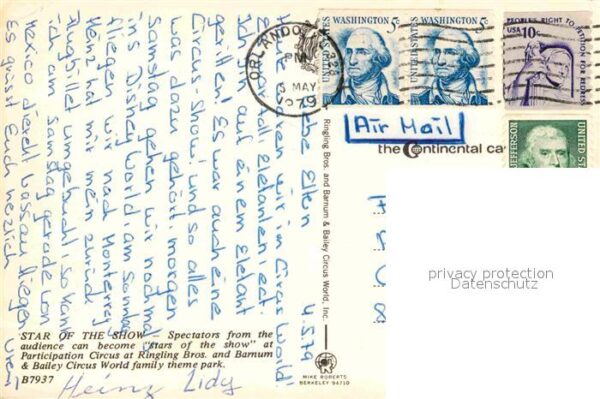 WASHINGTON 5c
WASHINGTON 5c
UNITED STATES
UNITED STATES
PEOPLE'S RIGHT TO PETITION FOR REDRESS
USA 10c
JEFFERSON
UNITED ST
ORLANDO
PM
3 MAY
1979
328
Air Mail
the Continental ca
4.5.79
Liebe Eltern
Heute waren wir in Circus World!
Elefanten, ect.
Ich auf einem Elefant
geritten! Es war auch eine
Circus Show, und so alles
was dazu gehört, morgen
Samstag gehen wir nochmal
in's Disney World, am Sonntag
fliegen wir nach Monterrey
Heinz hat mir mein zurück
Flugbillet umgebucht, so kann
ich am Samstag gerade von
Mexico direkt nassau fliegen
Es grüsst Euch herzlich
Heinz Lidy
Ringling Bros. and Barnum & Bailey Circus World, Inc.
STAR OF THE SHOW - Spectators from the
audience can become "stars of the show" at
Participation Circus at Ringling Bros. and Barnum
& Bailey Circus World family theme park.
B7937
MIKE ROBERTS
BERKELEY 94710
privacy protection
Datenschutz